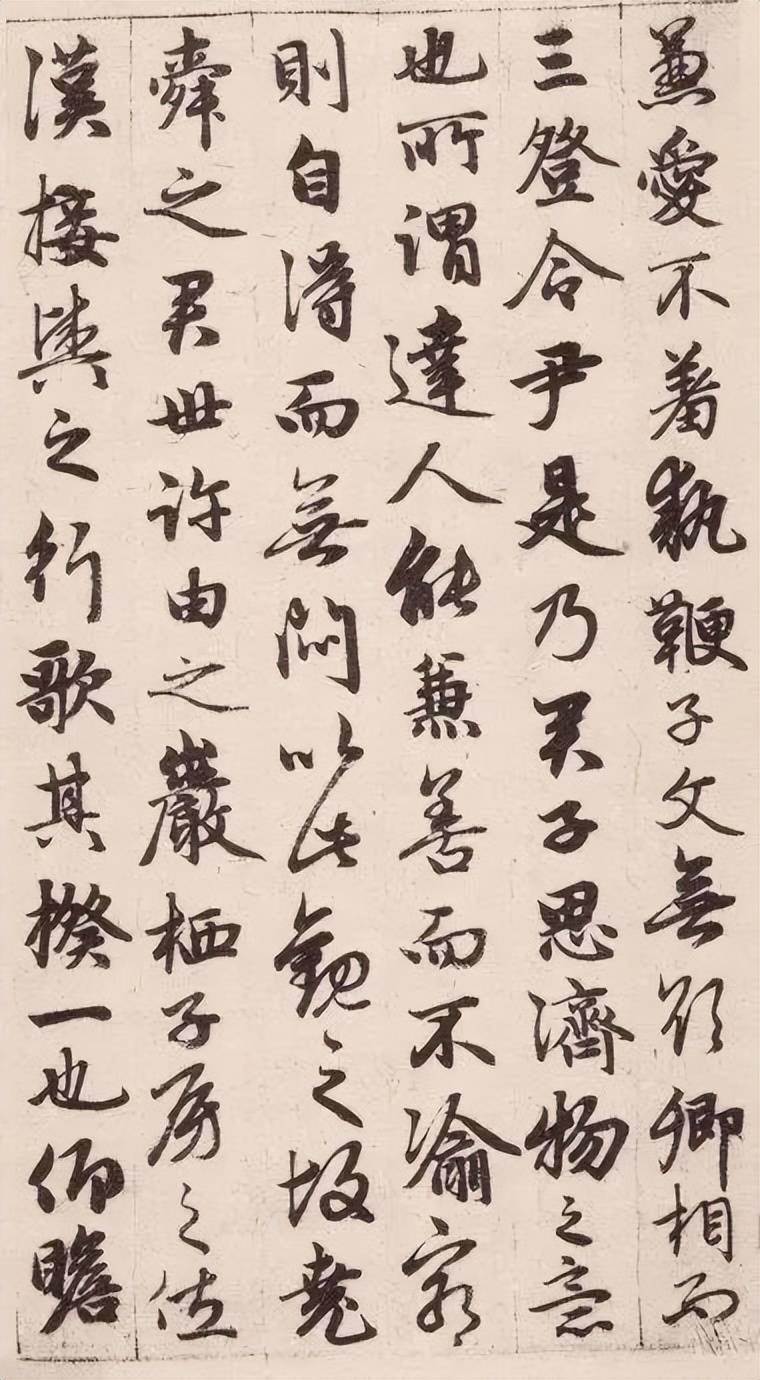 兼愛不羞執鞭子文無欲卿相而
三登令尹是乃君子思濟物之意
也所謂達人能兼善而不渝窮
則自得而無悶以此觀之故堯
舜之君世許由之巖栖子房之佐
漢接輿之行歌其揆一也仰瞻